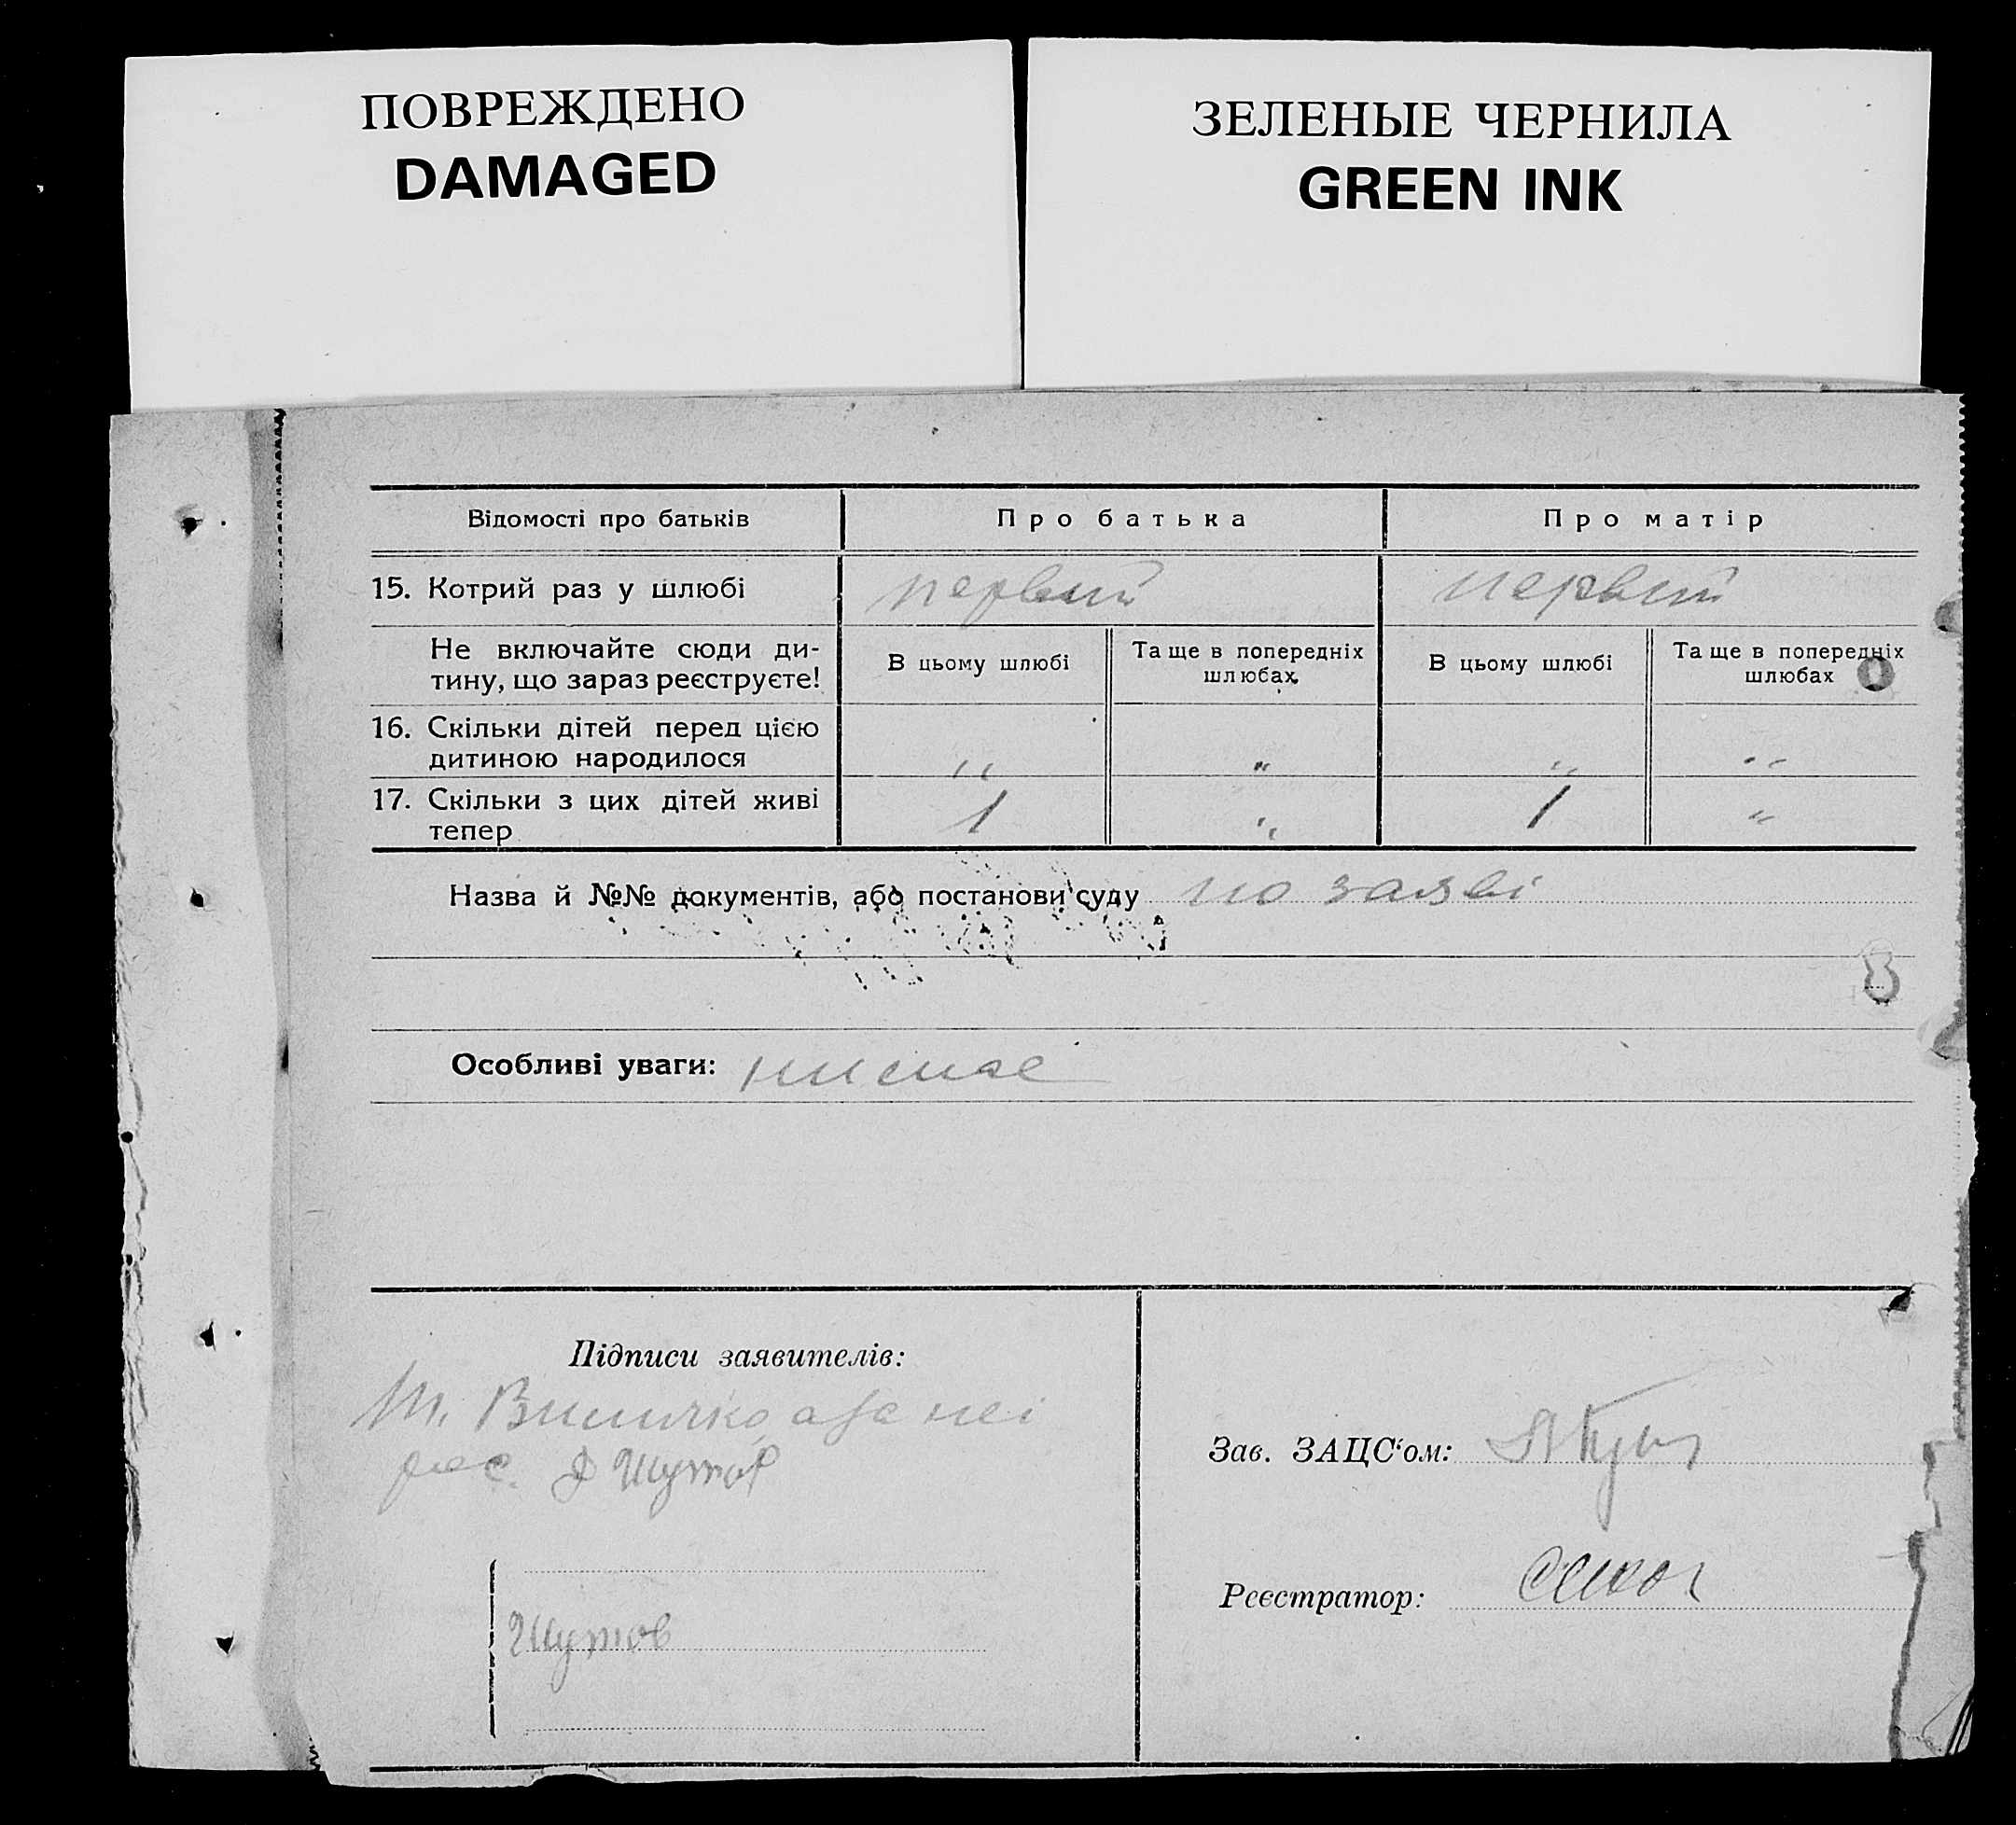 ПОВРЕЖДЕНО
DAMAGED
ЗЕЛЕНЫЕ ЧЕРНИЛА
GREEN INK
Відомості про батьків
Про батька
Про матір
15. Котрий раз у шлюбі
первий
первий
Не включайте сюди ди-
тину, що зараз реєструєте!
В цьому шлюбі
Та ще в попередніх
шлюбах
В цьому шлюбі
Та ще в попередніх
шлюбах
16. Скільки дітей перед цією
дитиною народилося
" " " "
17. Скільки з цих дітей живі
тепер
1 " 1 "
Назва й №№ документів, або постанови суду по заяві
Особливі уваги: немає
Підписи заявителів:
рос. Шутов
Зав. ЗАЦС'ом:
Реєстратор:
Шутов